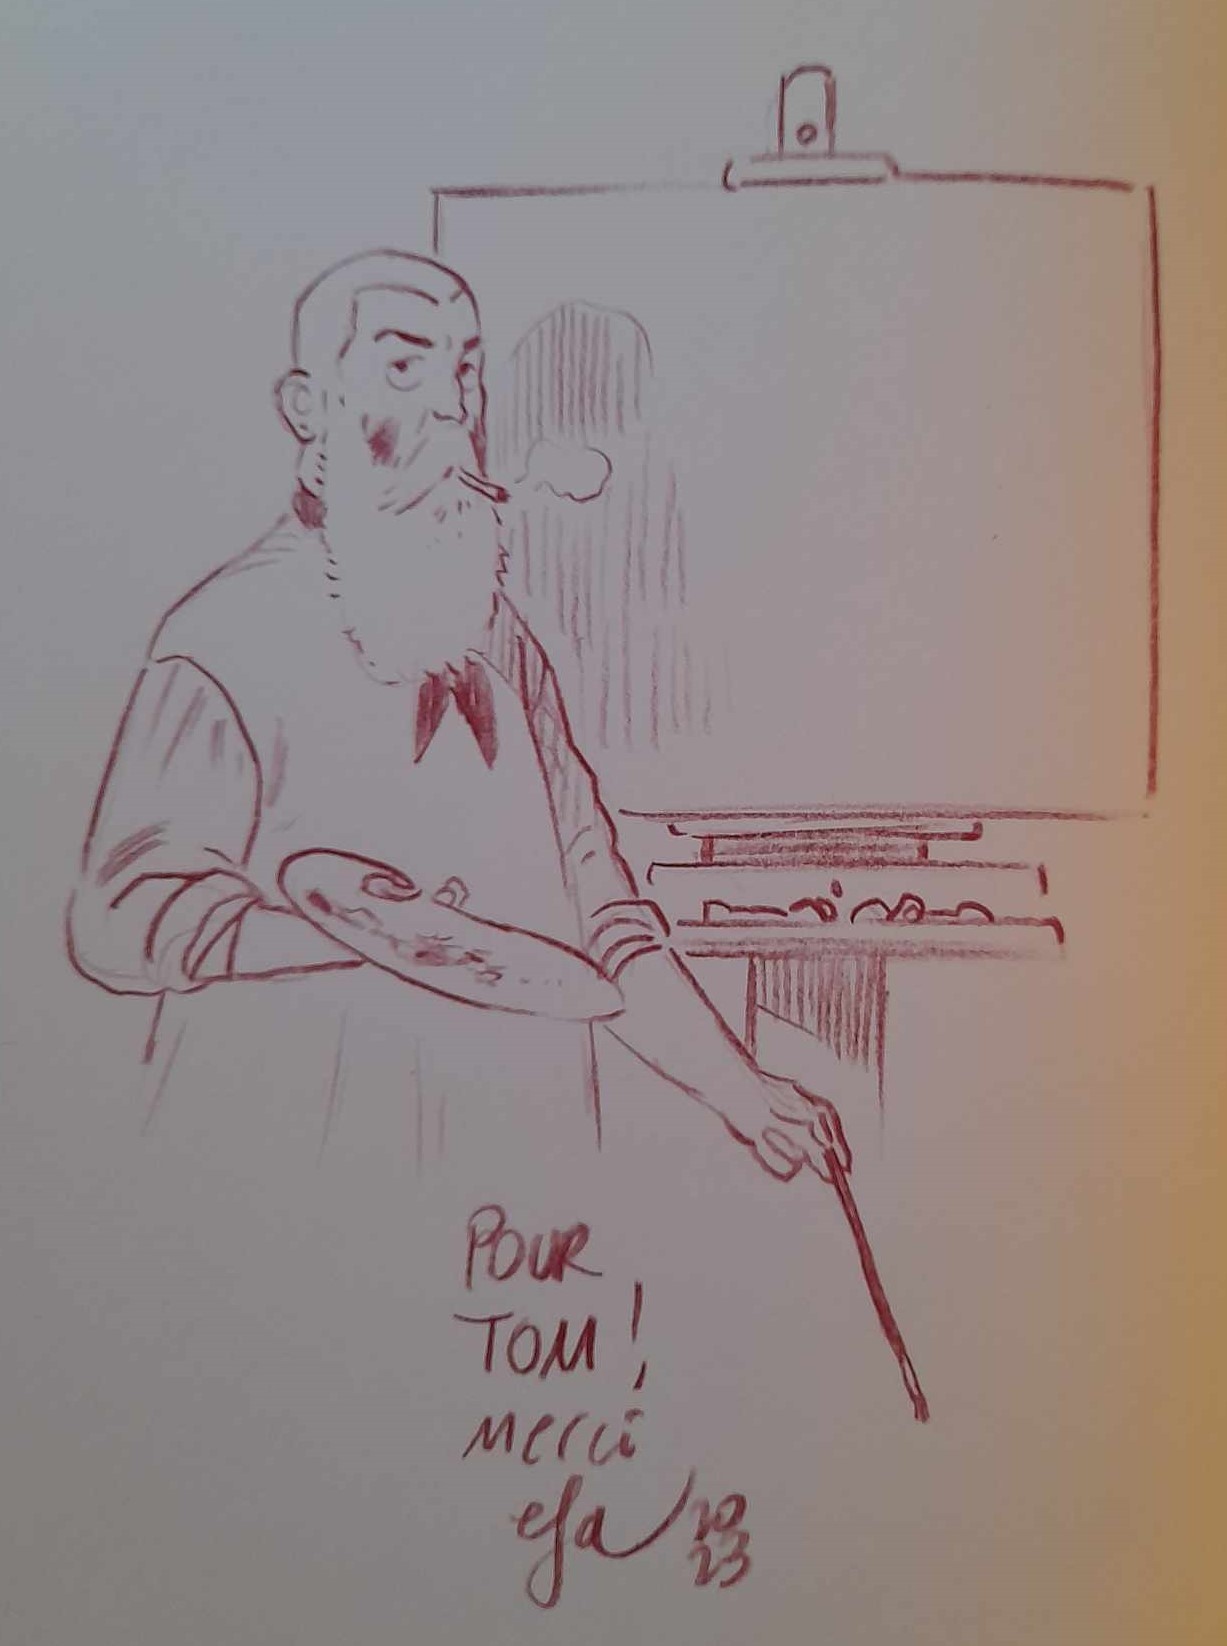 POUR
TOM !
merci
efa 20
23